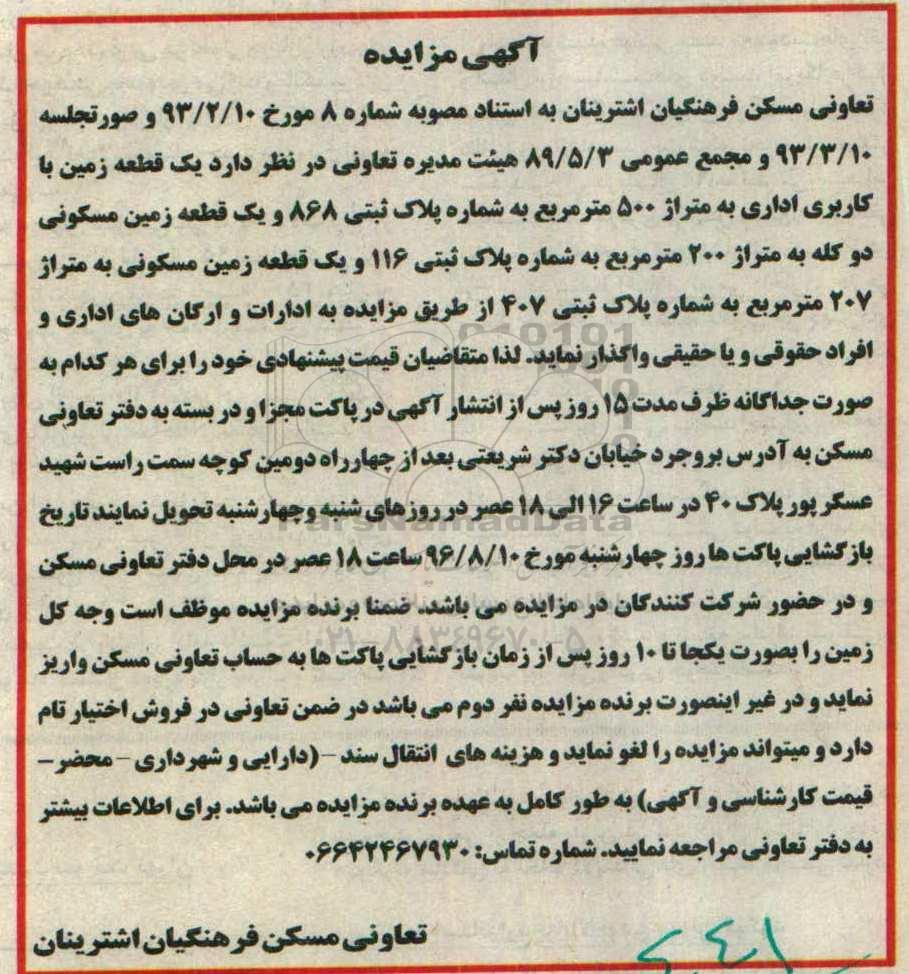 آگهی مزایده
تعاونی مسکن فرهنگیان اشترینان به استناد مصوبه شماره ۸ مورخ ۹۳/۲/۱۰ و صورتجلسه
۹۳/۳/۱۰ و مجمع عمومی ۸۹/۵/۳ هیئت مدیره تعاونی در نظر دارد یک قطعه زمین با
کاربری اداری به متراژ ۵۰۰ مترمربع به شماره پلاک ثبتی ۸۶۸ و یک قطعه زمین مسکونی
دو کله به متراژ ۲۰۰ مترمربع به شماره پلاک ثبتی ۱۱۶ و یک قطعه زمین مسکونی به متراژ
۲۰۷ مترمربع به شماره پلاک ثبتی ۴۰۷ از طریق مزایده به ادارات و ارگان های اداری و
افراد حقوقی و یا حقیقی واگذار نماید. لذا متقاضیان قیمت پیشنهادی خود را برای هر کدام به
صورت جداگانه ظرف مدت ۱۵ روز پس از انتشار آگهی در پاکت مجزا و در بسته به دفتر تعاونی
مسکن به آدرس بروجرد خیابان دکتر شریعتی بعد از چهارراه دومین کوچه سمت راست شهید
عسگر پور پلاک ۴۰ در ساعت ۱۶ الی ۱۸ عصر در روزهای شنبه وچهارشنبه تحویل نمایند تاریخ
بازگشایی پاکت ها روز چهارشنبه مورخ ۹۶/۸/۱۰ ساعت ۱۸ عصر در محل دفتر تعاونی مسکن
و در حضور شرکت کنندگان در مزایده می باشد. ضمنا برنده مزایده موظف است وجه کل
زمین را بصورت یکجا تا ۱۰ روز پس از زمان بازگشایی پاکت ها به حساب تعاونی مسکن واریز
نماید و در غیر اینصورت برنده مزایده نفر دوم می باشد در ضمن تعاونی در فروش اختیار تام
دارد و میتواند مزایده را لغو نماید و هزینه های انتقال سند – (دارایی و شهرداری – محضر –
قیمت کارشناسی و آگهی) به طور کامل به عهده برنده مزایده می باشد. برای اطلاعات بیشتر
به دفتر تعاونی مراجعه نمایید. شماره تماس: ۰۶۶۴۲۴۶۷۹۳۰
تعاونی مسکن فرهنگیان اشترینان
ParsNamadData
۰۲۱-۸۸۳۴۹۶۷۰-۵